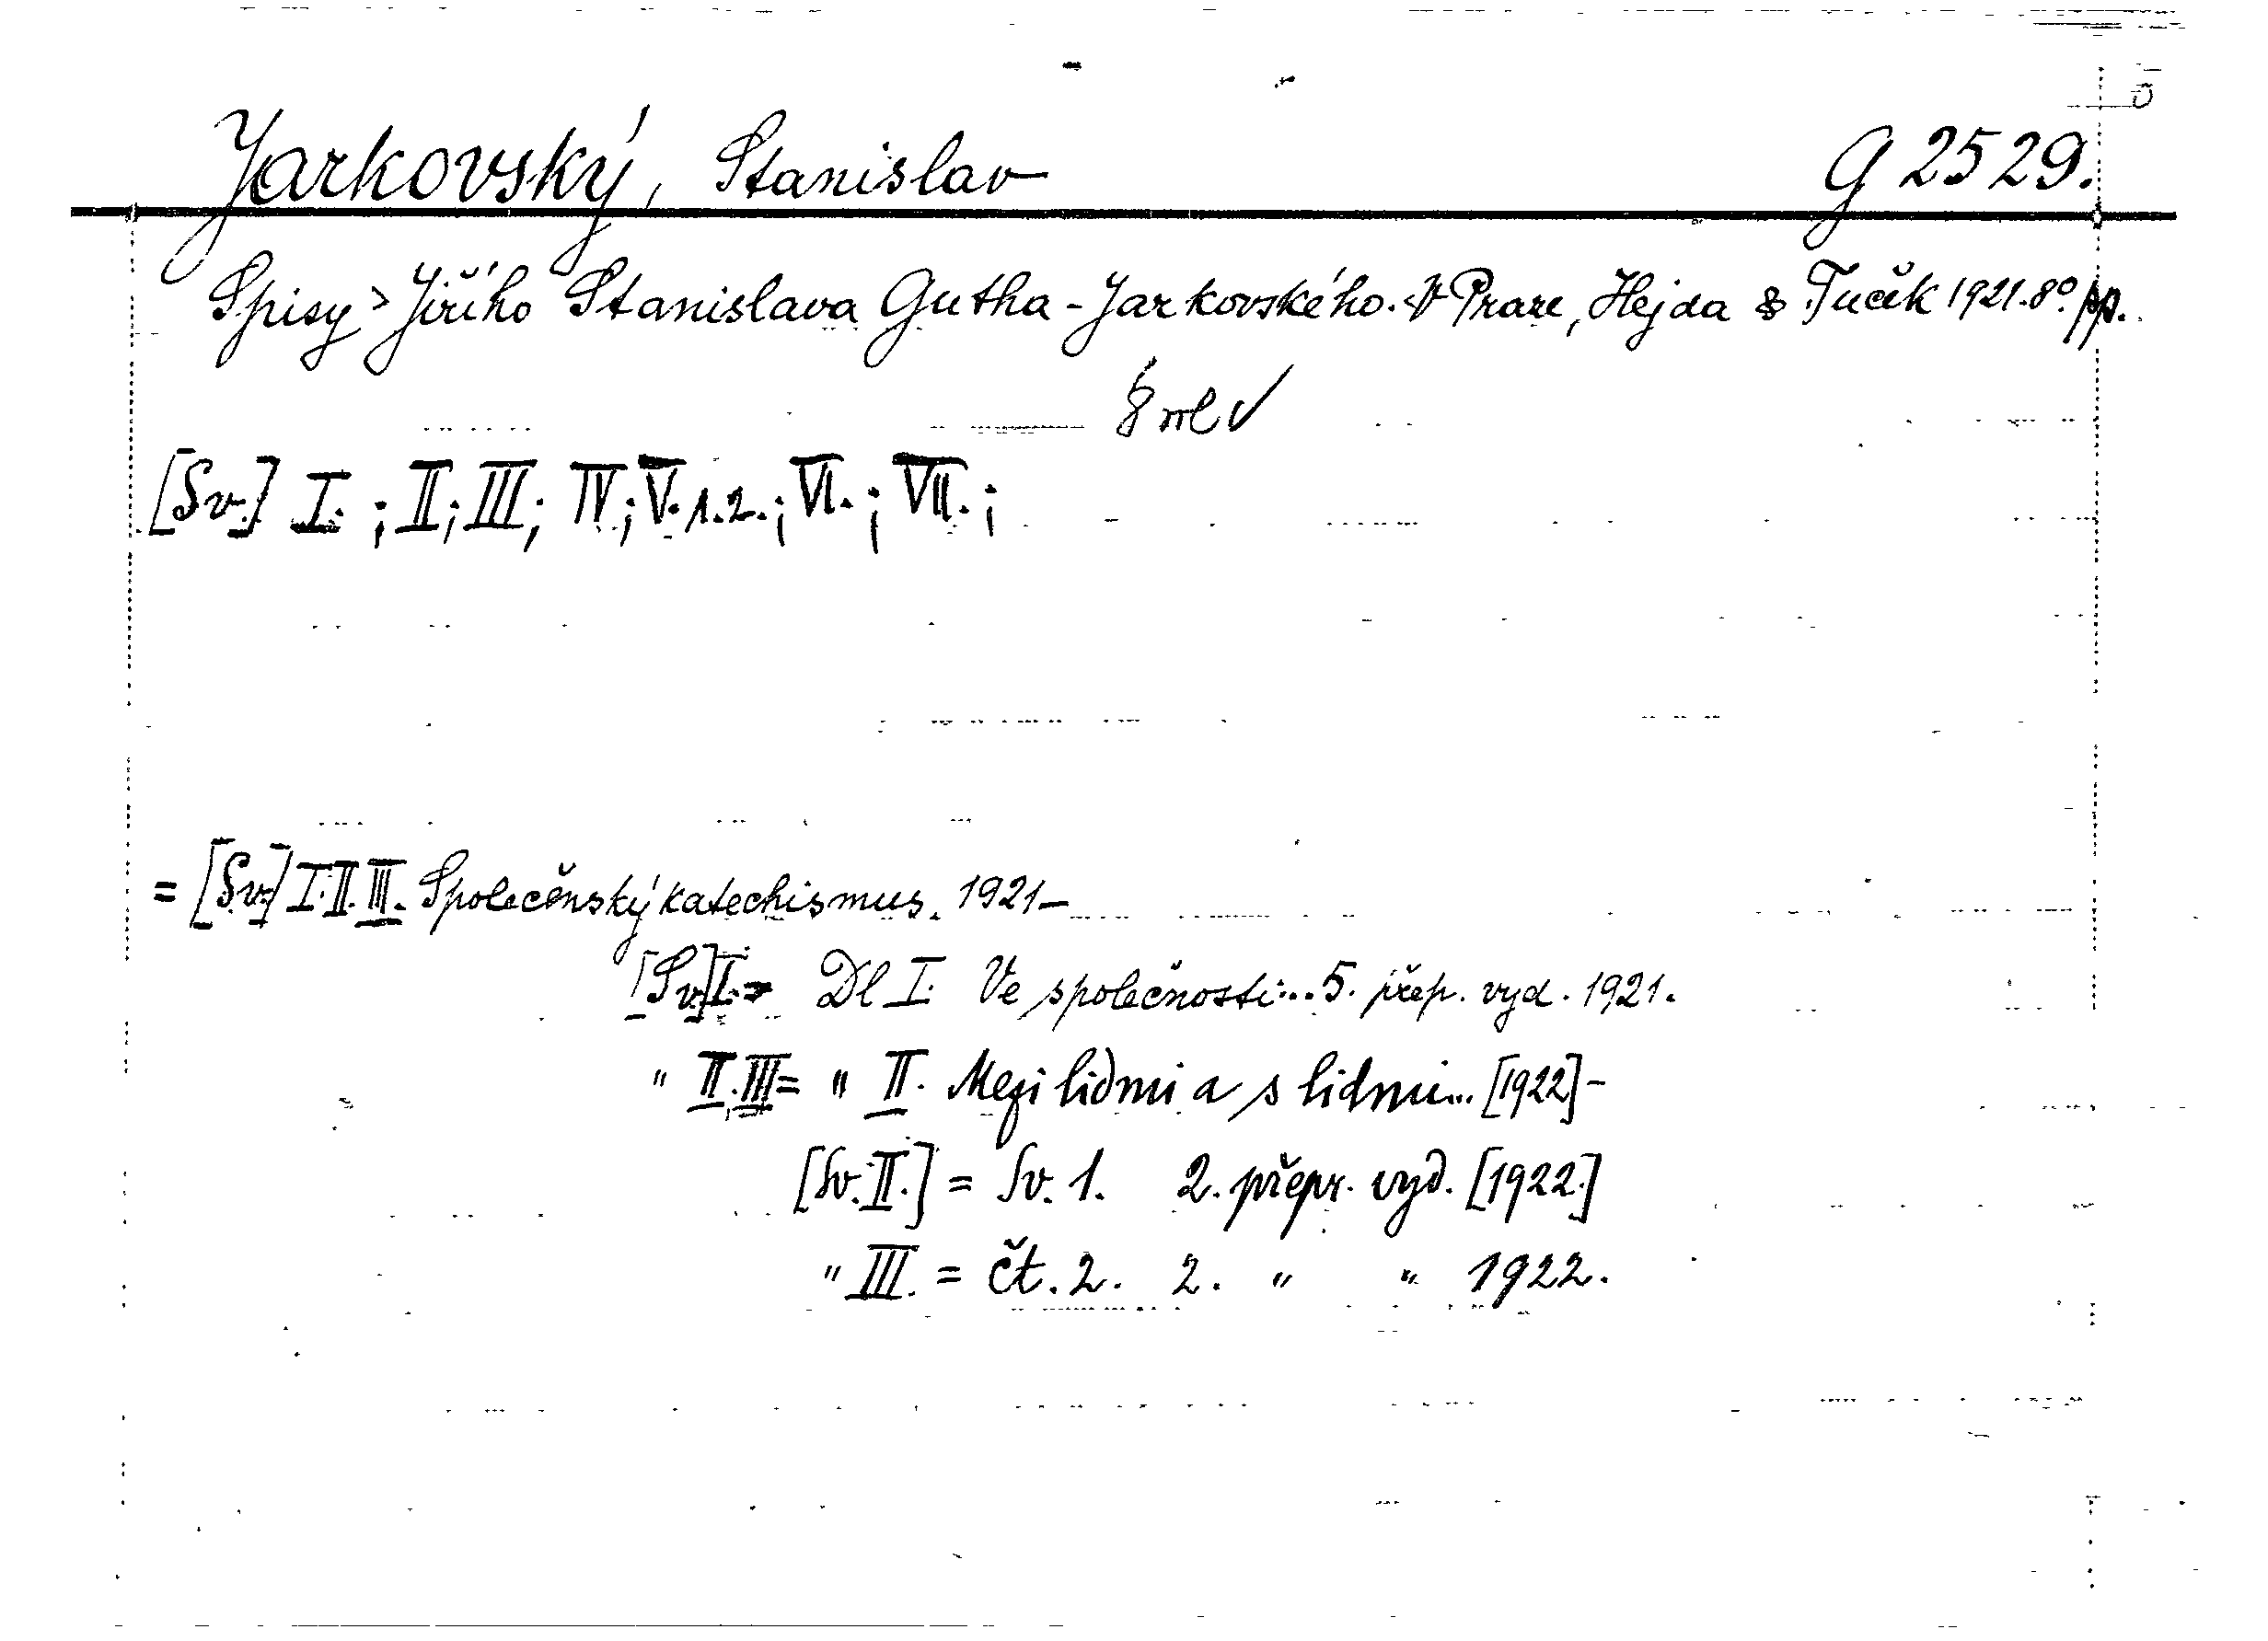 Jarkovský, Stanislav G 2529.
Spisy > Jiřího Stanislava Gutha-Jarkovského. V Praze, Hejda & Tuček 1921. 8º. pp.
8 ml ✓
[Sv.] I. ; II; III; IV; V. 1. 2. ; VI. ; VII. ;
= [Sv.] I. II. III. Společenský katechismus. 1921–
[Sv.] I. = Dl I. Ve společnosti... 5. přep. vyd. 1921.
" II. III = " II. Mezi lidmi a s lidmi... [1922] -
[Sv. II.] = Sv. 1. 2. přepr. vyd. [1922.]
" III. = čt. 2. 2. " " 1922.